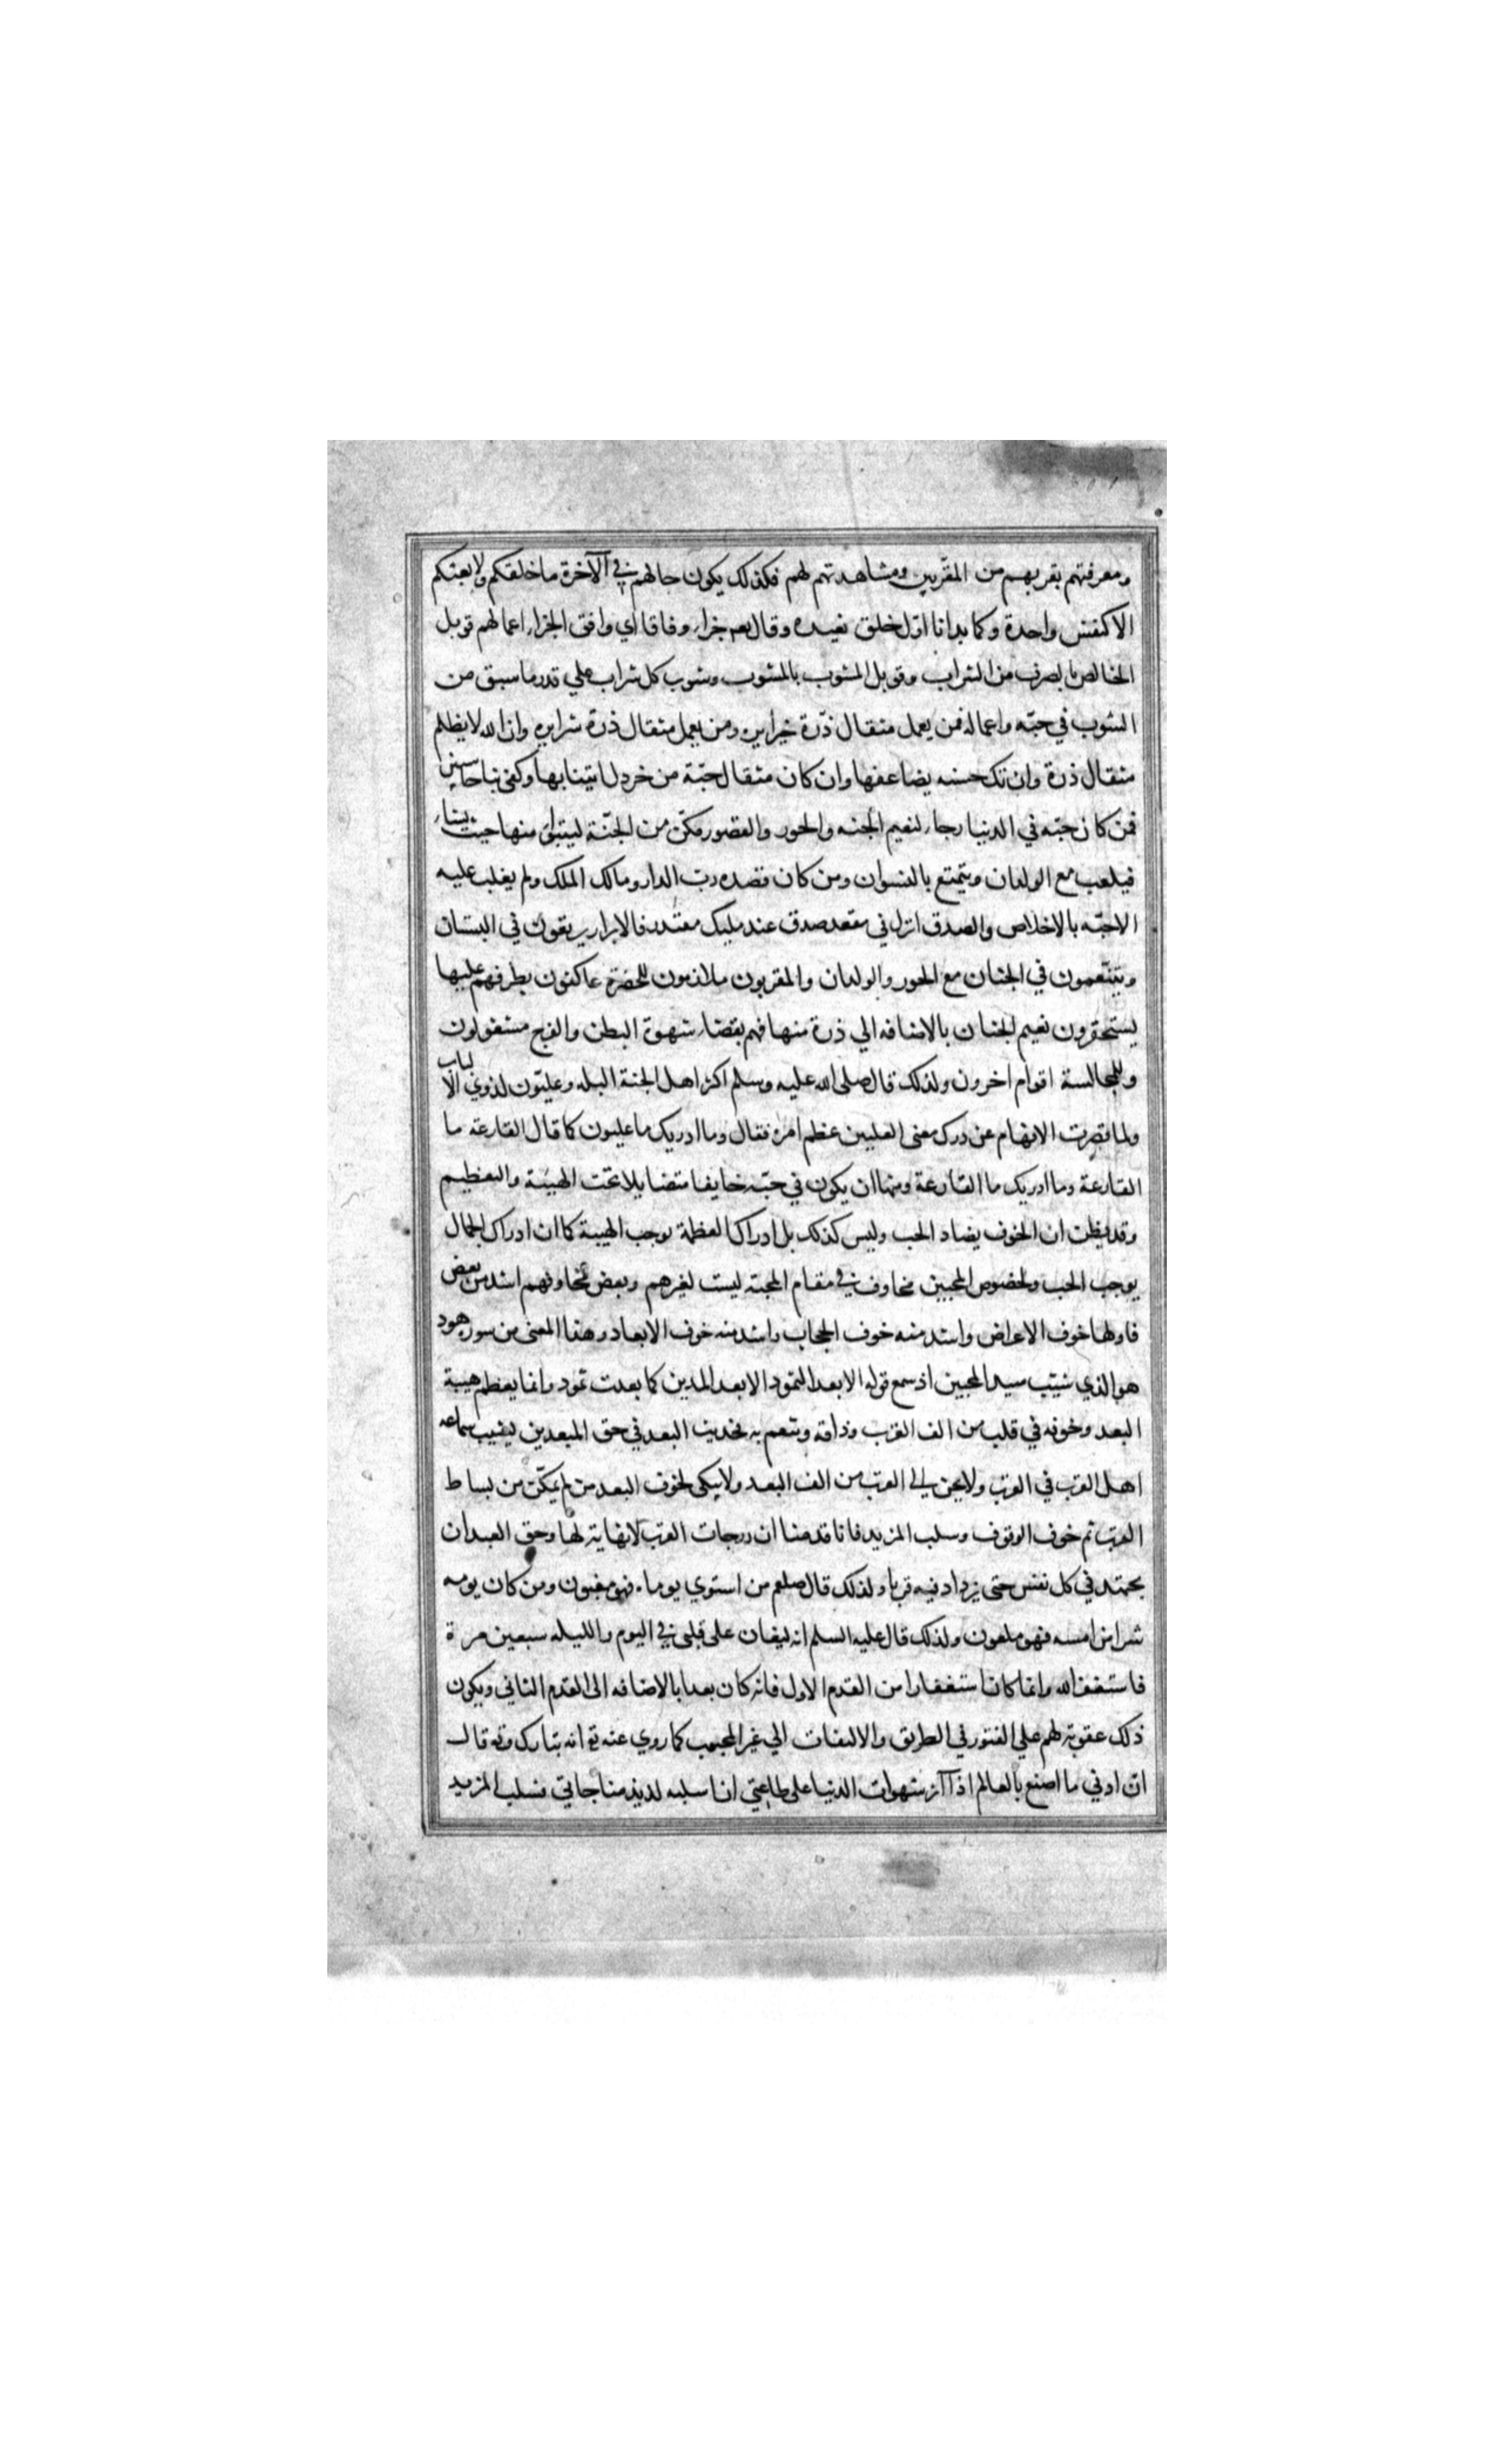 ومعرفتهم بقربهم من المقربين ومشاهدتهم لهم فكذلك يكون حالهم في الآخرة ما خلقكم ولا بعثكم
الا كنفس واحدة وكما بدانا اول خلق نعيده وقال تعم جزاء وفاقا اي وافق الجزاء اعمالهم قوبل
الخالص بالصرف من الشراب وقوبل المشوب بالمشوب وشوب كل شراب علي قدر ما سبق من
الشوب في حبّه واعماله فمن يعمل مثقال ذرّة خيرا يره ومن يعمل مثقال ذرة شرا يره وان الله لا يظلم
مثقال ذرة وان تك حسنه يضاعفها وان كان مثقال حبّة من خردل اتينا بها وكفى بنا حاسبين
فمن كان حبّه في الدنيا رجاء لنعيم الجنه والحور والقصور مكّن من الجنّة ليتبوأ منها حيث يشاء
فيلعب مع الولدان ويتمتع بالنسوان ومن كان قصده ربّ الدار ومالك الملك ولم يغلب عليه
الا حبّه بالاخلاص والصدق انزل في مقعد صدق عند مليك مقتدر فالابرار يرتعون في البستان
ويتنعّمون في الجنان مع الحور والولدان والمقربون ملازمون للحضرة عاكفون بطرفهم عليها
يستحقرون نعيم الجنان بالاضافه الي ذرة منها فهم بقضاء شهوة البطن والفرج مشغولون
وللمجالسة اقوام اخرون ولذلك قال صلى الله عليه وسلم اكثر اهل الجنة البله وعليّون لذوي الالباب
ولما قصرت الافهام عن درك معنى العليين عظم امره فقال وما ادريك ما عليون كما قال القارعة ما
القارعة وما ادريك ما القارعة ومنها ان يكون في حبّه خايفا متضايلا تحت الهيبة والتعظيم
وقد يظن ان الخوف يضاد الحب وليس كذلك بل ادراك العظمة يوجب الهيبة كما ان ادراك الجمال
يوجب الحب ولخصوص المحبين مخاوف في مقام المحبة ليست لغيرهم وبعض مخاوفهم اشد من بعض
فاولها خوف الاعراض واشد منه خوف الحجاب واشد منه خوف الابعاد وهذا المعنى من سور هود
هو الذي شيّب سيد المحبين اذ سمع قوله الا بعدا لثمود الا بعدا لمدين كما بعدت ثمود وانما يعظم هيبة
البعد وخوفه في قلب من الف القرب وذاقه وتنعم به فحديث البعد في حق المبعدين يشيب سماعه
اهل القرب في القرب ولا يحن الى القرب من الف البعد ولا يبكى لخوف البعد من لم يمكّن من بساط
القرب ثم خوف الوقوف وسلب المزيد فانا قدمنا ان درجات القرب لا نهاية لها وحق العبد ان
يجتهد في كل نفس حتى يزداد فيه قربا ولذلك قال صلعم من استوي يوماه فهو مغبون ومن كان يومه
شرا من امسه فهو ملعون ولذلك قال عليه السلم انه ليغان على قلبى في اليوم والليله سبعين مرة
فاستغفر الله وانما كان استغفارا من القدم الاول فانه كان بعدا بالاضافه الى القدم الثاني ويكون
ذلك عقوبة لهم علي الفتور في الطريق والالتفات الي غير المحبوب كما روي عنه ع انه تبارك وتع قال
ان ادني ما اصنع بالعالم اذا آثر شهوات الدنيا على طاعتي ان اسلبه لذيذ مناجاتي فسلب المزيد